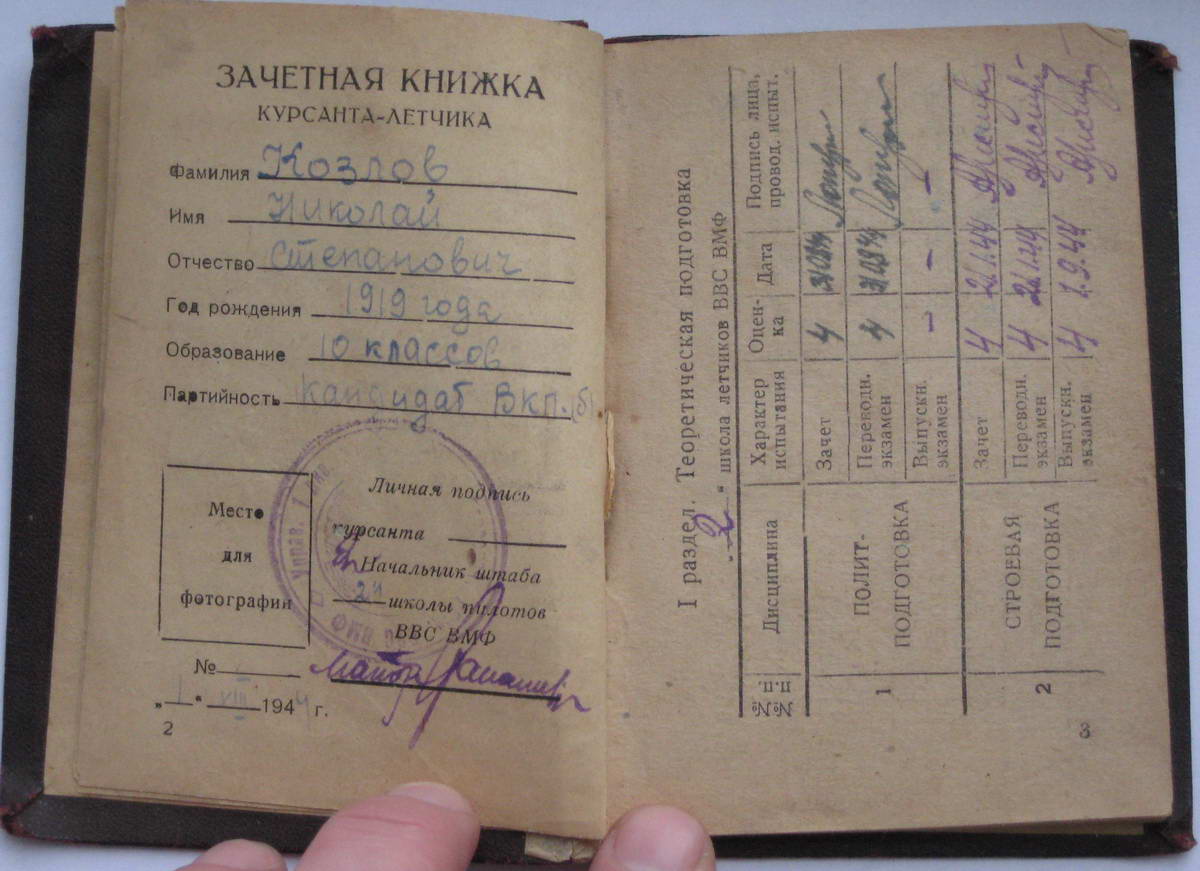 ЗАЧЕТНАЯ КНИЖКА
КУРСАНТА-ЛЕТЧИКА
Фамилия Козлов
Имя Николай
Отчество Степанович
Год рождения 1919 года
Образование 10 классов
Партийность кандидат ВКП.(б)
Место
для
фотографии
Личная подпись
курсанта
Начальник штаба
2й школы пилотов
ВВС ВМФ
майор
№
"1" VIII 1944 г.
2
Управ. 1
ВМФ
I раздел. Теоретическая подготовка
"2" школа летчиков ВВС ВМФ
№№ п.п. Дисциплина Характер испытания Оцен-ка Дата Подпись лица, провод. испыт.
1 ПОЛИТ-ПОДГОТОВКА Зачет 4
Переводн. экзамен 4
Выпускн. экзамен - - -
2 СТРОЕВАЯ ПОДГОТОВКА Зачет 4
Переводн. экзамен 4
Выпускн. экзамен 4 1.9.44
3